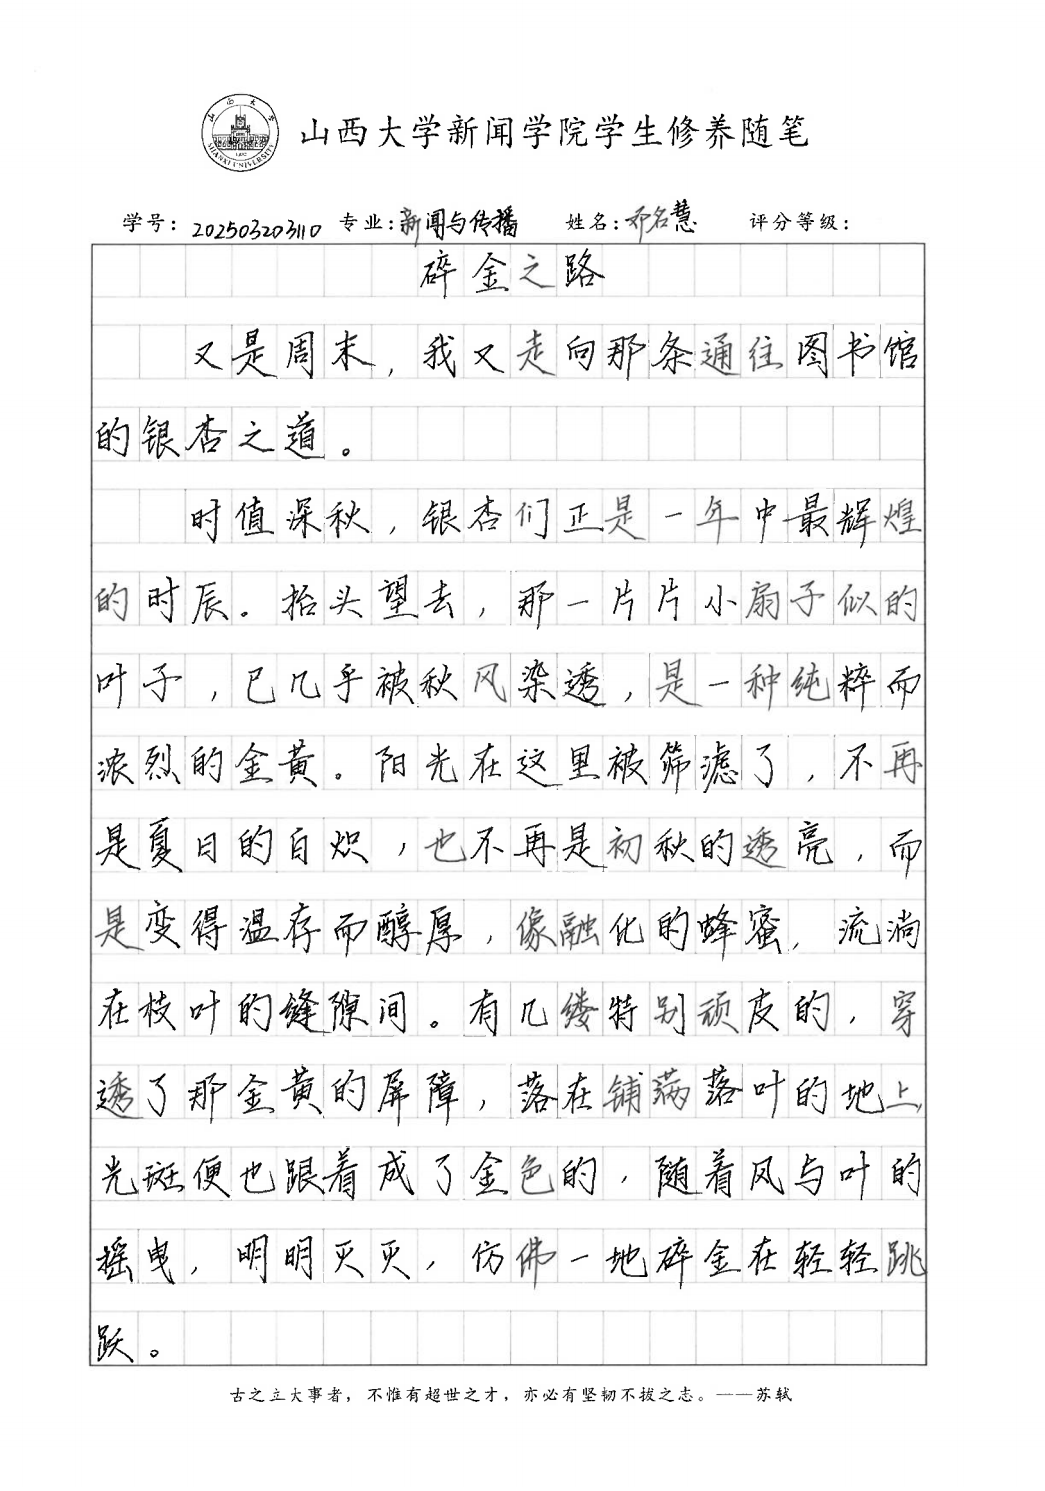 山西大学
SHANXI UNIVERSITY
1902
山西大学新闻学院学生修养随笔
学号：202503203110 专业：新闻与传播 姓名：邓名慧 评分等级：
碎金之路
又是周末，我又走向那条通往图书馆
的银杏之道。
时值深秋，银杏们正是一年中最辉煌
的时辰。抬头望去，那一片片小扇子似的
叶子，已几乎被秋风染透，是一种纯粹而
浓烈的金黄。阳光在这里被筛滤了，不再
是夏日的白炽，也不再是初秋的透亮，而
是变得温存而醇厚，像融化的蜂蜜，流淌
在枝叶的缝隙间。有几缕特别顽皮的，穿
透了那金黄的屏障，落在铺满落叶的地上，
光斑便也跟着成了金色的，随着风与叶的
摇曳，明明灭灭，仿佛一地碎金在轻轻跳
跃。
古之立大事者，不惟有超世之才，亦必有坚韧不拔之志。——苏轼